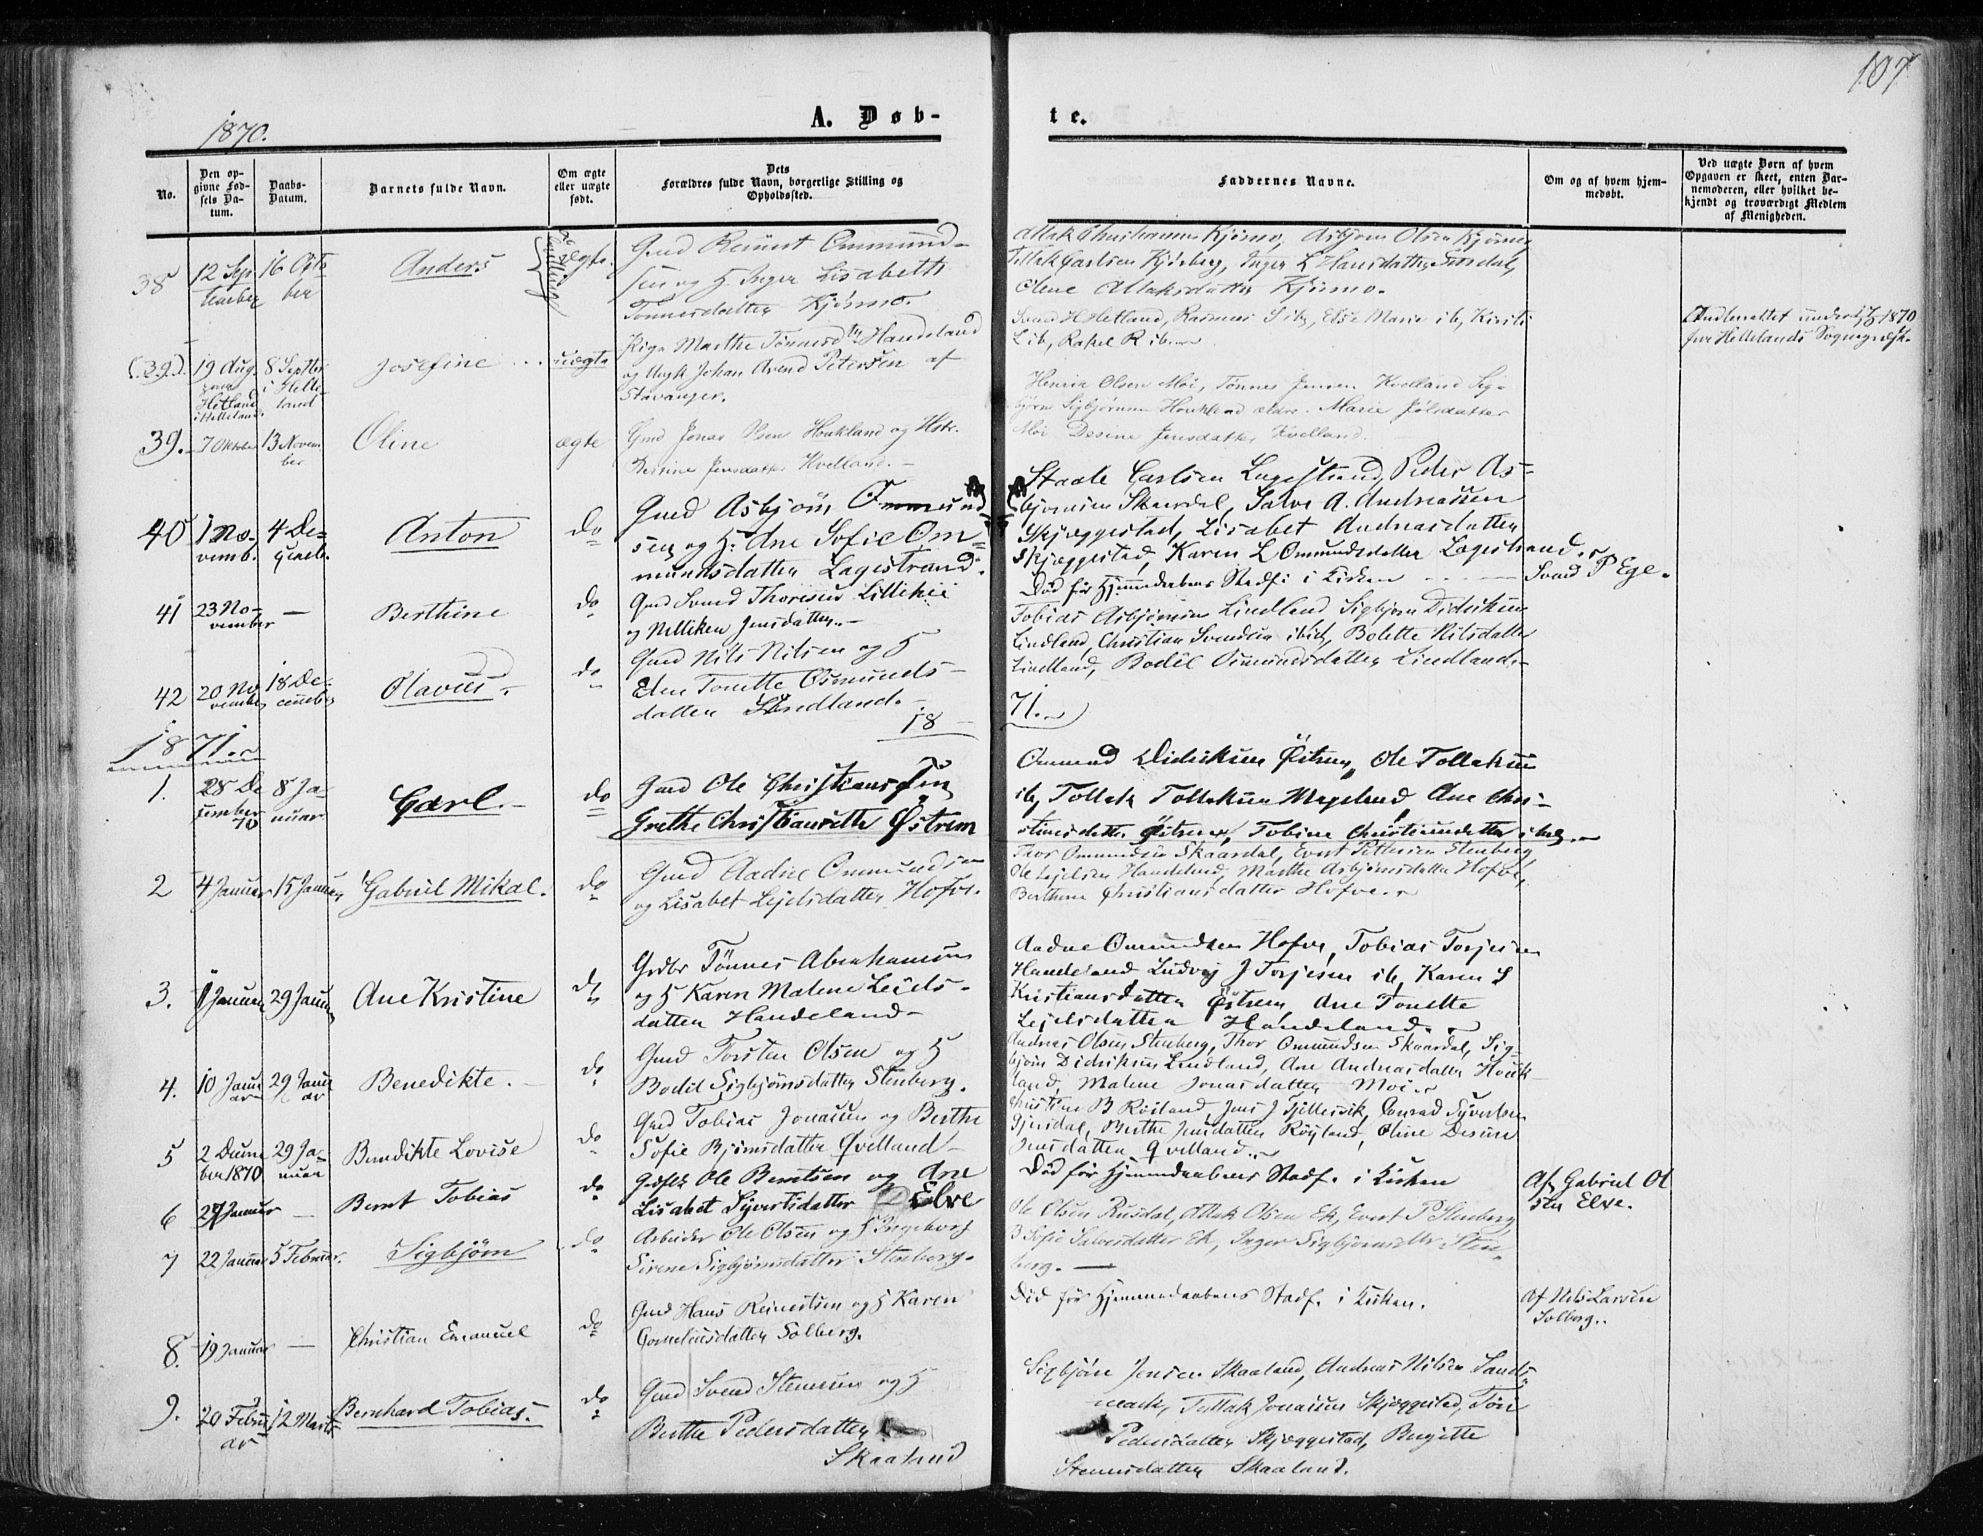 107
1870.
A. Døb-
te.
No.
Den op-
givne Fød-
sels Da-
tum.
Daabs-
Datum.
Barnets fulde Navn.
Om ægte
eller uægte
født.
Dets
Forældres fulde Navn, borgerlige Stilling og
Opholdssted.
Faddernes Navne.
Om og af hvem hjem-
medøbt.
Ved uægte Børn af hvem
Opgaven er skeet, enten Bar-
nemoderen, eller hvilket be-
kjendt og troværdigt Medlem
af Menigheden.
38
12 Sep
tember
16 Octo
ber
Anders
ægte.
Gmd Ommund-
sen og H Inger Lisabeth
Tønnesdatter Kjørmo.
Atlak Kjørmo, Asbjørn Olsen Kjørmo
Tollak Carlsen Kydberg, Inger L Hansdatter
Olene Atlaksdatter Kjørmo.
(39).
19 Aug.
Hetland
i Helleland.
8 Septbr
i Helle
land
Josefine
uægte
Pige Marthe Tønnesdtr Handeland
og Ungk Johan Arend Petersen af
Stavanger.
Svend H Hetland, Rasmus S ib, Else Marie ib,
L ib, Rakel R ib.
Indberettet under 1870
for Hellelands Sognepræst.
39.
7 Oktober
13 Novem
ber
Oline
ægte
Gmd Jonas Olsen Houkland og Hstr.
Desine Jensdatter Kvelland.
Henrik Olsen Moi, Tønnes Jensen Kvelland Sig-
bjørn Sigbjørnsen Houkland ældre. Marie
Moi Desine Jensdatter Kvelland.
40
1 No-
vemb.
4 De-
cemb.
Anton
do
Gmd Asbjørn Ommund
sen og H: Ane Sofie Om-
mundsdatter Lagestrand.
Staale Carlsen Lagestrand, Peder As-
bjørnsen Skaardal, Salve A. Andreassen
Skjæggestad, Lisabet Andreasdatter
Skjæggestad, Karen L Ommundsdatter Lagestrand.
41
23 No-
vember
—
Berthine
do
Gmd Svend Thoresen
og Nilliken Jensdatter.
Død før Hjemmedaabens Stadf: i Kirken
Svend P Ege.
42
20 No
vember
18 De-
cember
Olavus.
do
Gmd Nils Nilsen og H
Elen Tonette Osmunds-
datter Lindland.
Tobias Asbjørnsen Lindland, Sigbjørn Didriksen
Lindland, Christian Svendsen ibid, Bolette Nilsdatter
Lindland, Bodil Osmundsdatter Lindland.
18
71.
1871.
1.
28 De
cember
70
8 Ja-
nuar
Carl.
do
Gmd Ole Christiansen
Grethe Østrem
Ommund Didriksen Østrem, Ole Tollaksen
ib, Tollak Tollaksen Ane Chri-
stinesdatter Østrem, Tobine Christiansdatter ibid.
2
4 Januar
15 Januar
Gabriel Mikal.
do
Gmd Aadne Ommundsen
og Lisabet Lejelsdatter Hofve.
Thor Ommundsen Skaardal, Evert Pettersen Stenberg,
Ole Lejelsen Handeland, Marthe Asbjørnsdatter Hofve,
Berthine Christiansdatter Hofve.
3.
Januar
29 Januar
Ane Kristine
do
Tønnes Abrahamsen
og H Karen Malene Lejels-
datter Handeland
Aadne Ommundsen Hofve, Tobias Torjesen
Handeland Ludvig J Torjesen ib, Karen S
Kristiansdatter Østrem, Ane Tonette
Lejelsdatter Handeland.
4.
10 Janu
ar
29 Janu
ar
Benedikte.
do
Gmd Torsten Olsen og H
Bodil Sigbjørnsdatter Stenberg.
Andreas Olsen Stenberg, Thor Ommundsen Skaardal, Sig-
bjørn Didriksen Lindland, Ane Andreasdatter Houk-
land, Malene Jonasdatter Moi.
5
2 Decem
ber 1870
29 Ja-
nuar
Bendikte Lovise
do
Gmd Tobias Jonassen og Berthe
Sofie Bjørnsdatter Qvelland
B Røiland, Jens J Conrad Syvertsen
Gjersdal, Berthe Jensdatter Røyland, Oline Desine
Jensdatter Qvelland.
6
Januar
—
Bernt Tobias
do
Ole Berntsen og Ane
Lisabet Syvertsdatter Elve
Død før Hjemmedaabens Stadf. i Kirken
Af Gabriel Ol
sen Elve.
7
22 Januar
5 Februar.
Sigbjørn
do
Arbeider Ole Olsen og H Ingeborg
Sirene Sigbjørnsdatter Stenberg.
Ole Olsen Rusdal, Atlak Olsen Ek, Evert P Stenberg,
B Sofie Salvesdatter Ek, Inger Sigbjørnsdtr Sten-
berg.
8.
19 Januar
—
Christian Emanuel
do
Gmd Hans Reinertsen og H Karen
Corneliusdatter Solberg.
Død før Hjemmedaabens Stadf. i Kirken.
Af Nels Larsen
Solberg.
9.
20 Febru
ar
12 Marts
Bernhard Tobias.
do
Gmd Svend Stensen og H
Berthe Pedersdatter
Skaaland
Sigbjørn Jensen Skaaland, Andreas Nilsen Sands-
mark, Tollak Jonassen Skjæggestad, Tori
Pedersdatter Skjæggestad, Birgitte
Stensdatter Skaaland.